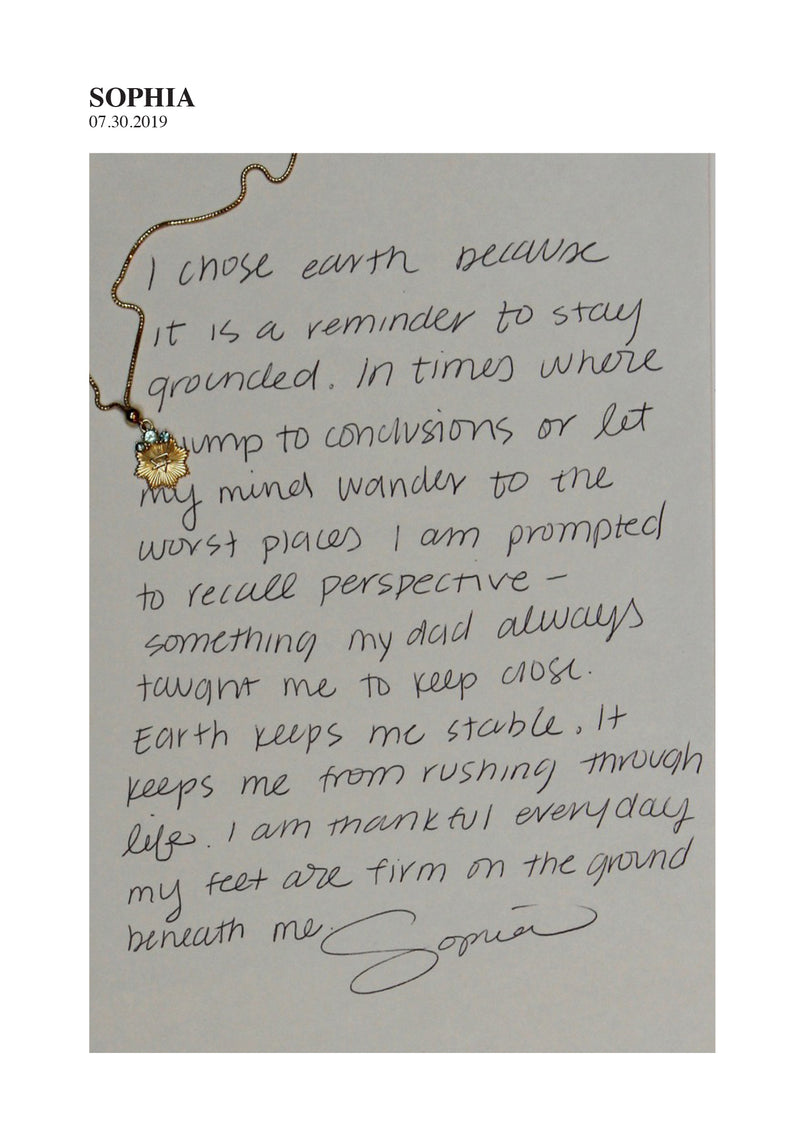 SOPHIA
07.30.2019
I chose earth because
it is a reminder to stay
grounded. In times where
jump to conclusions or let
my mind wander to the
worst places I am prompted
to recall perspective –
something my dad always
taught me to keep close.
Earth keeps me stable. It
keeps me from rushing through
life. I am thankful everyday
my feet are firm on the ground
beneath me. Sophia